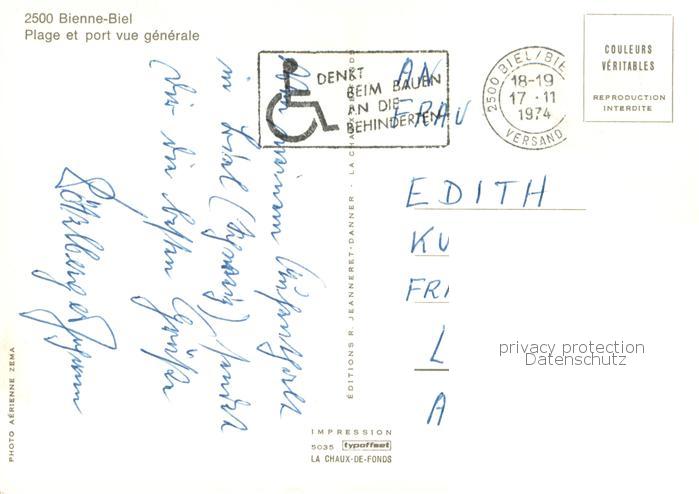 2500 Bienne-Biel
Plage et port vue générale
DENKT
BEIM BAUEN
AN DIE
BEHINDERTEN
2500 BIEL/BIE
18-19
17-11
1974
VERSAND
COULEURS
VÉRITABLES
REPRODUCTION
INTERDITE
AN
FRAU
EDITH
KU
FRI
L
A
privacy protection
Datenschutz
in Biel (Schweiz) sendet
Dir die besten Grüße
PHOTO AÉRIENNE ZEMA
ÉDITIONS R. JEANNERET-DANNER - LA CHAUX-DE-FONDS
IMPRESSION
5035 typoffset
LA CHAUX-DE-FONDS